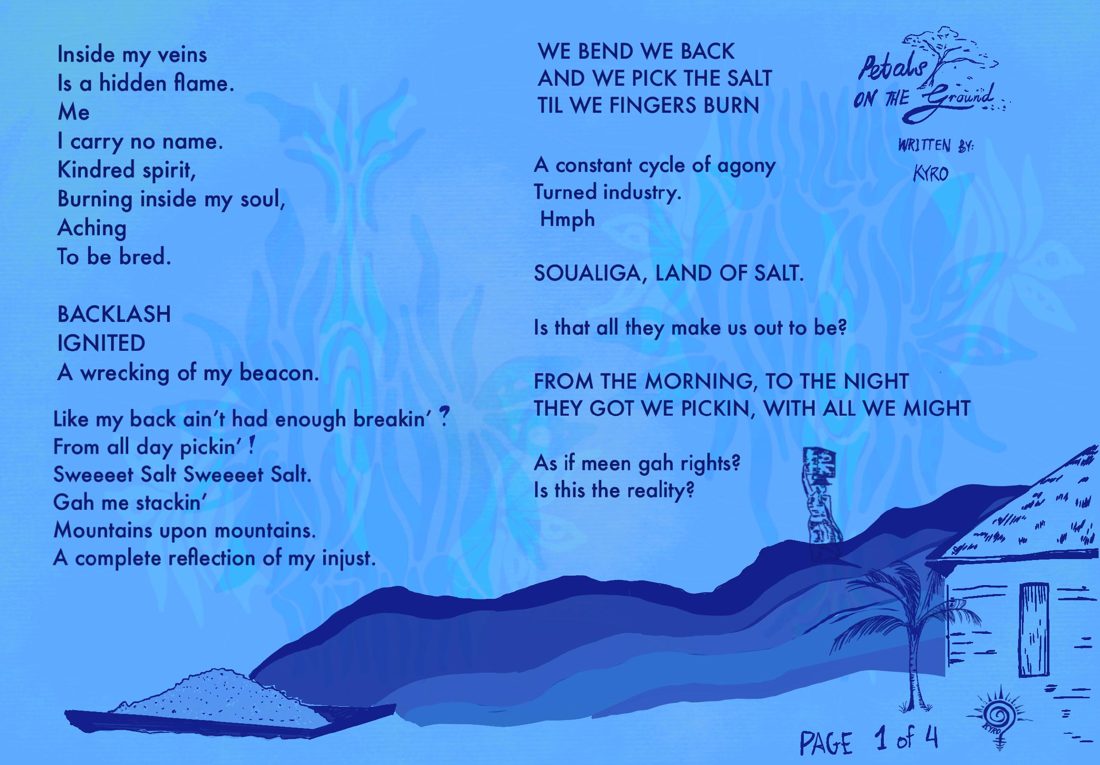 Petals
ON THE Ground
WRITTEN BY:
KYRO
Inside my veins
Is a hidden flame.
Me
I carry no name.
Kindred spirit,
Burning inside my soul,
Aching
To be bred.
BACKLASH
IGNITED
A wrecking of my beacon.
Like my back ain't had enough breakin' ?
From all day pickin' !
Sweeeet Salt Sweeeet Salt.
Gah me stackin'
Mountains upon mountains.
A complete reflection of my injust.
WE BEND WE BACK
AND WE PICK THE SALT
TIL WE FINGERS BURN
A constant cycle of agony
Turned industry.
Hmph
SOUALIGA, LAND OF SALT.
Is that all they make us out to be?
FROM THE MORNING, TO THE NIGHT
THEY GOT WE PICKIN, WITH ALL WE MIGHT
As if meen gah rights?
Is this the reality?
KYRO
PAGE 1 of 4